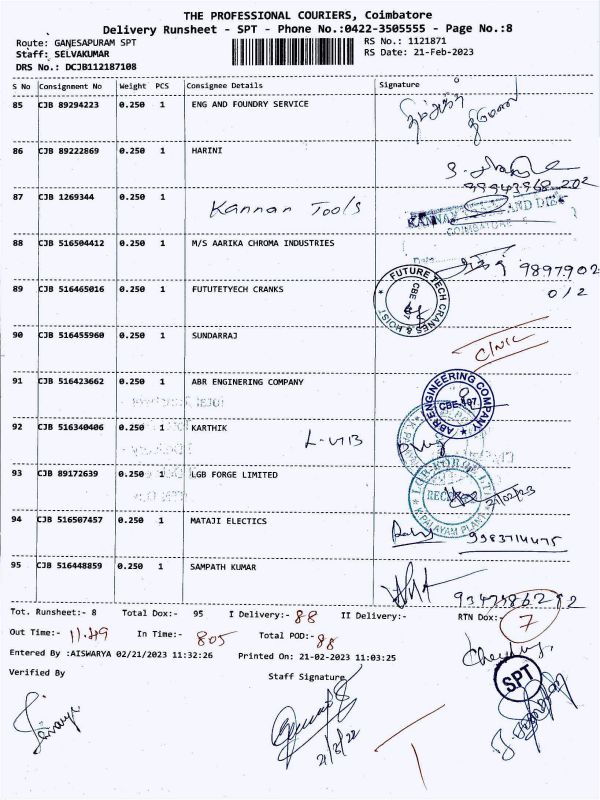 THE PROFESSIONAL COURIERS, Coimbatore
Delivery Runsheet - SPT - Phone No.:0422-3505555 - Page No.:8
Route: GANESAPURAM SPT
Staff: SELVAKUMAR
DRS No.: DCJB112187108
RS No.: 1121871
RS Date: 21-Feb-2023
S No Consignment No Weight PCS Consignee Details Signature
85 CJB 89294223 0.250 1 ENG AND FOUNDRY SERVICE
86 CJB 89222869 0.250 1 HARINI
87 CJB 1269344 0.250 1 Kannan Tools
88 CJB 516504412 0.250 1 M/S AARIKA CHROMA INDUSTRIES
89 CJB 516465016 0.250 1 FUTUTETYECH CRANKS
FUTURE TECH CRANES & HOIST
CBE
90 CJB 516455960 0.250 1 SUNDARRAJ
91 CJB 516423662 0.250 1 ABR ENGINERING COMPANY
ABR ENGINEERING COMPANY
92 CJB 516340406 0.250 1 KARTHIK
93 CJB 89172639 0.250 1 LGB FORGE LIMITED
21/02/23
94 CJB 516507457 0.250 1 MATAJI ELECTICS
95 CJB 516448859 0.250 1 SAMPATH KUMAR
Tot. Runsheet:- 8 Total Dox:- 95 I Delivery:- 88 II Delivery:- RTN Dox:- 7
Out Time:- 11.49 In Time:- 805 Total POD:- 88
Entered By :AISWARYA 02/21/2023 11:32:26 Printed On: 21-02-2023 11:03:25
Verified By Staff Signature
SPT